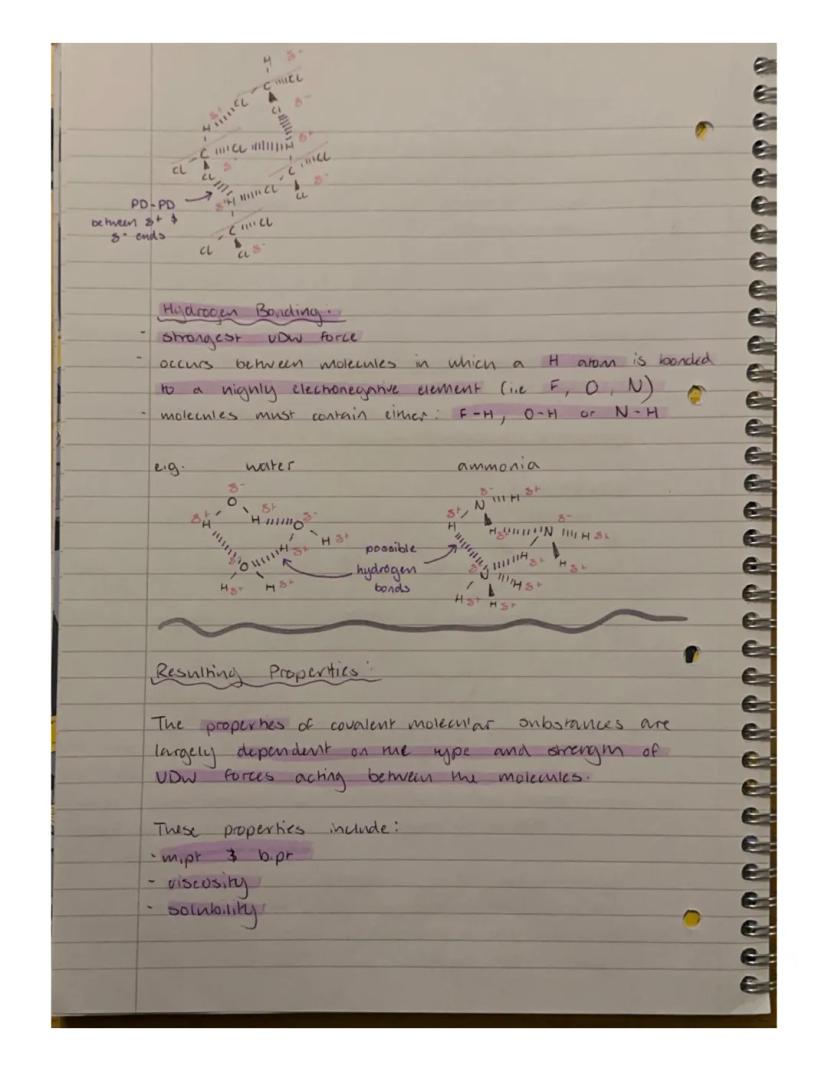 H δ-
C Cl
Cl Cl δ-
δ+ H H δ+
C Cl
Cl Cl δ- C Cl
δ+ H Cl Cl δ-
PD-PD
between δ+ &
δ- ends
C Cl
Cl Cl δ-
Hydrogen Bonding:
- strongest VDW force
- occurs between molecules in which a H atom is bonded
to a highly electronegative element (i.e F, O, N)
- molecules must contain either: F-H, O-H or N-H
e.g. water ammonia
δ- δ- δ+
O N H
δ+ δ+ δ- δ+ δ-
H H O H H N H δ+
H H δ+ δ+ δ+
possible
hydrogen
bonds
δ- O H δ+ H δ+
H δ+ H δ+ H δ+ H δ+ H δ+
Resulting Properties:
The properties of covalent molecular substances are
largely dependent on the type and strength of
VDW forces acting between the molecules.
These properties include:
- m.pt & b.pt
- viscosity
- solubility